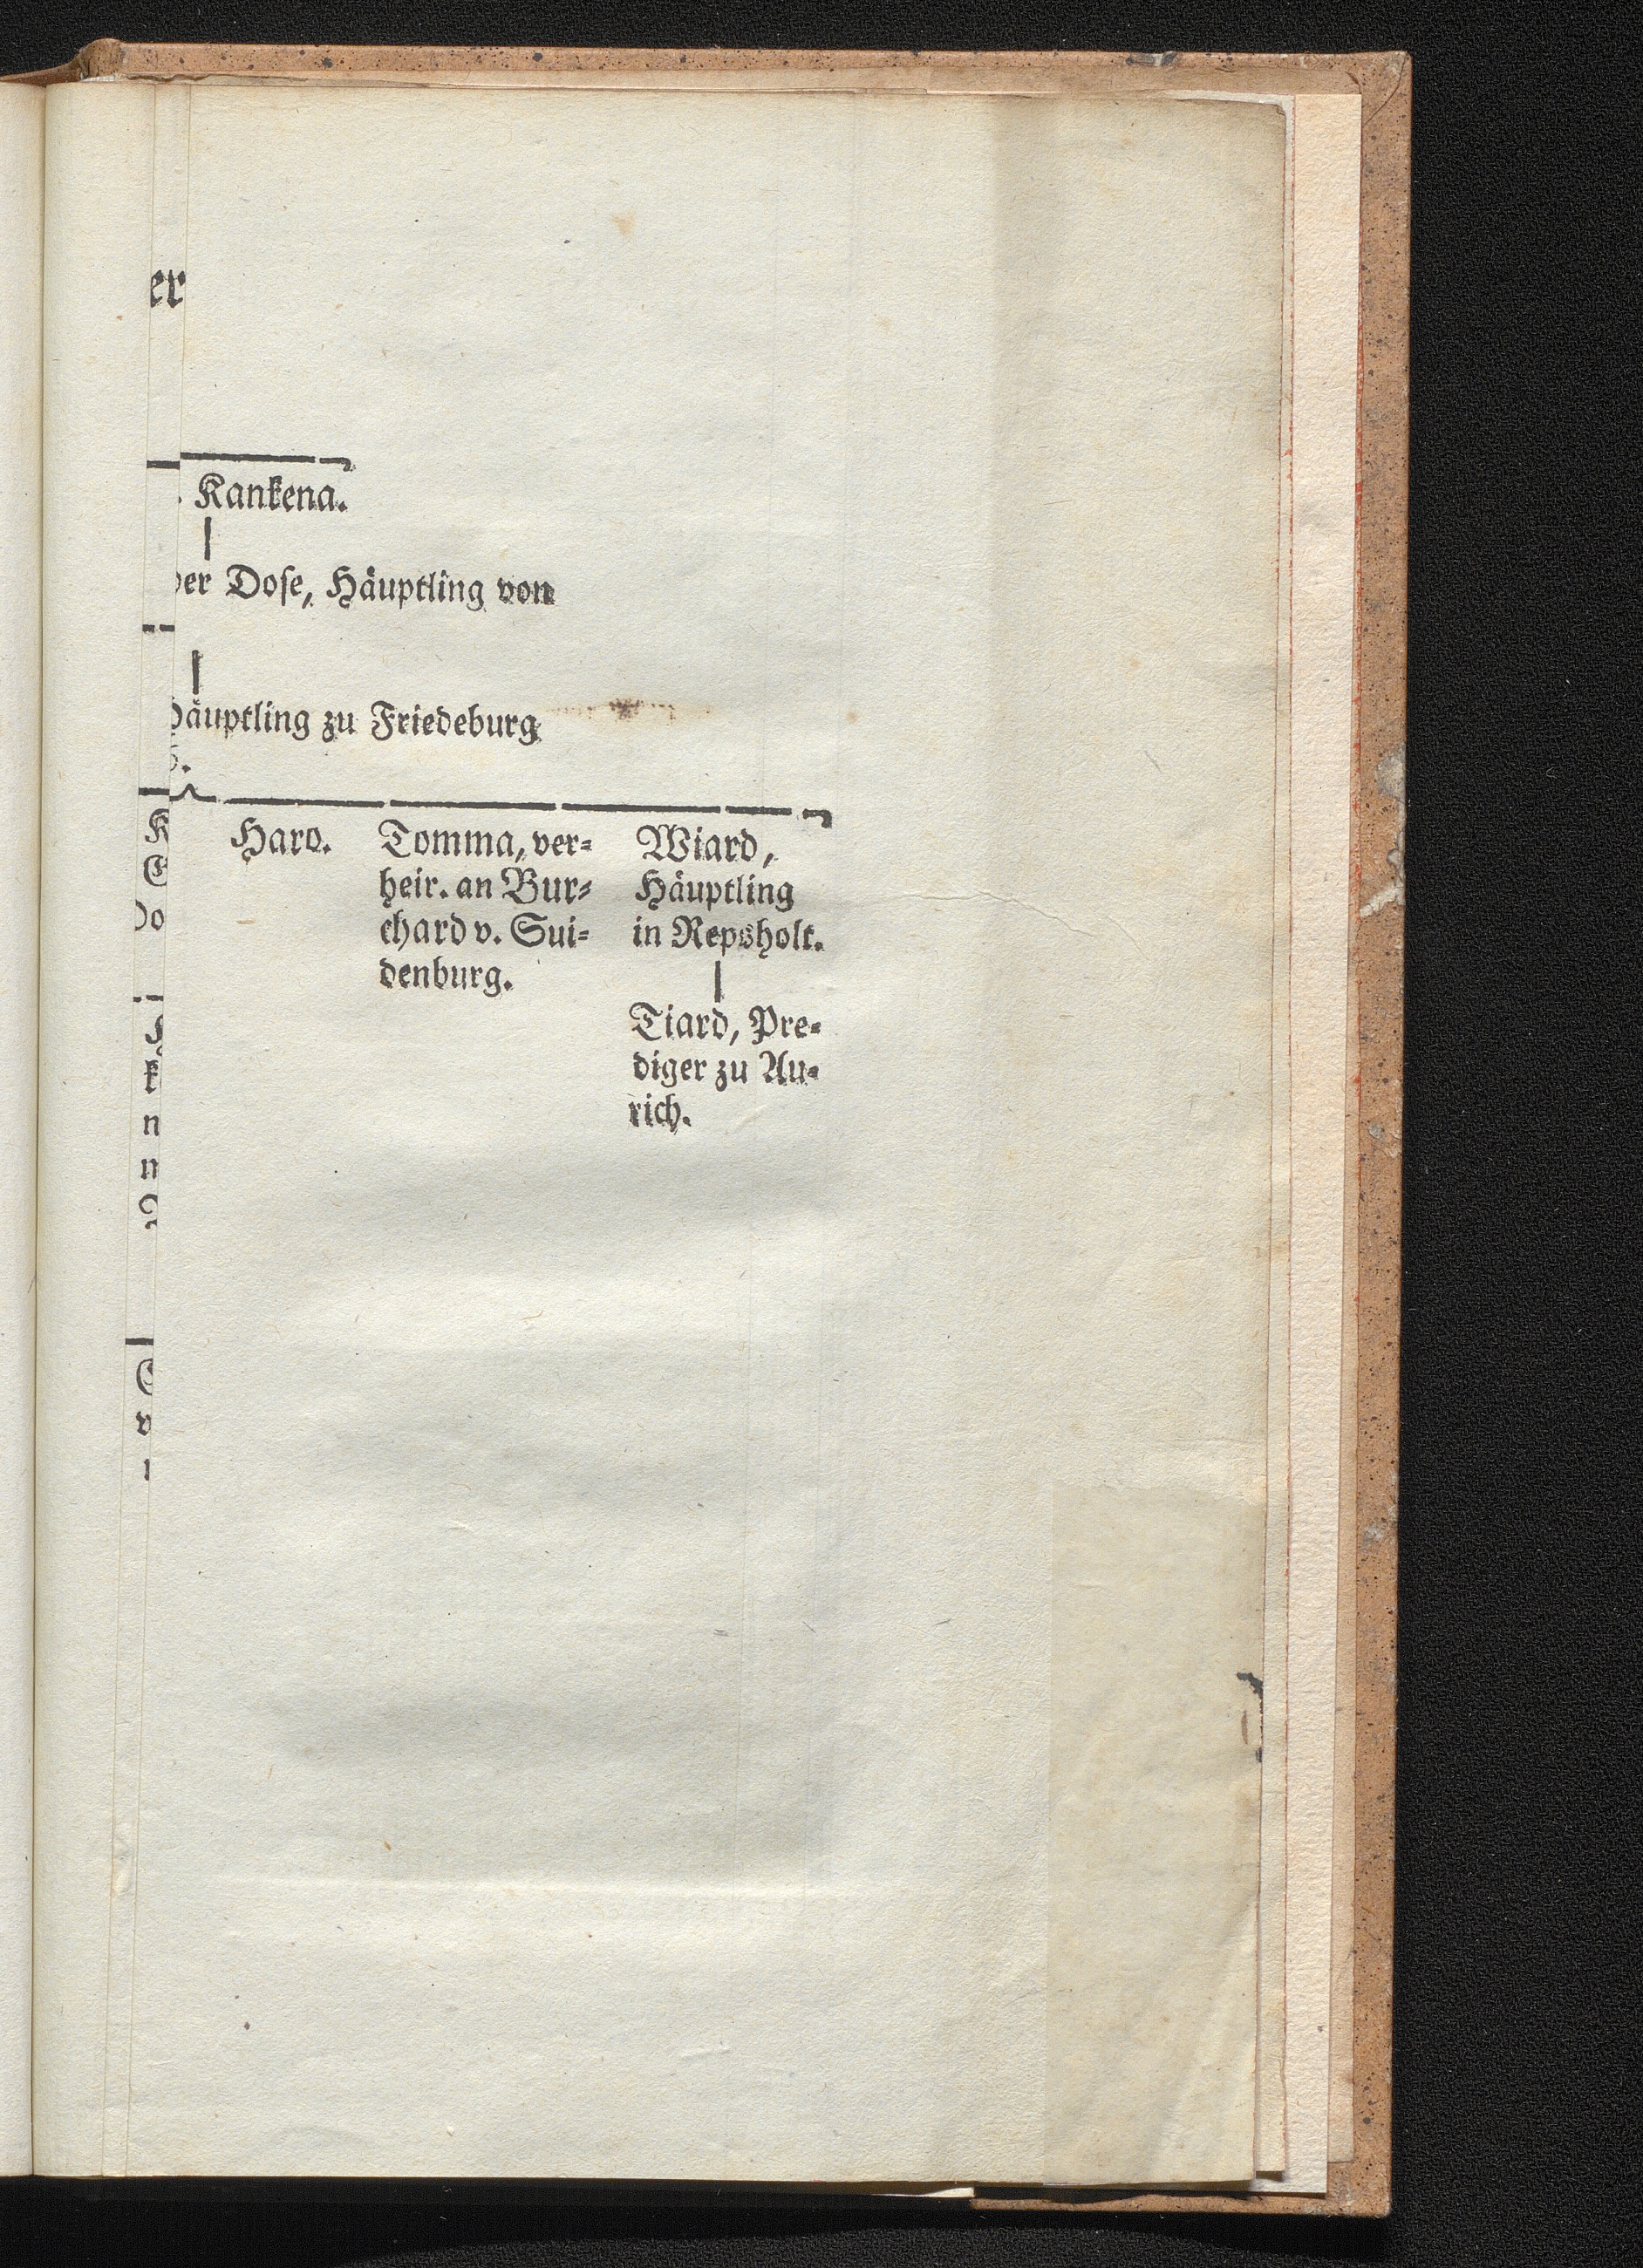 er
Kankena.
der Dose, Häuptling von
Häuptling zu Friedeburg
Haro.
Tomma, ver-
heir. an Bur-
chard v. Sui-
denburg.
Wiard,
Häuptling
in Repsholt.
Tiard, Pre-
diger zu Au-
rich.